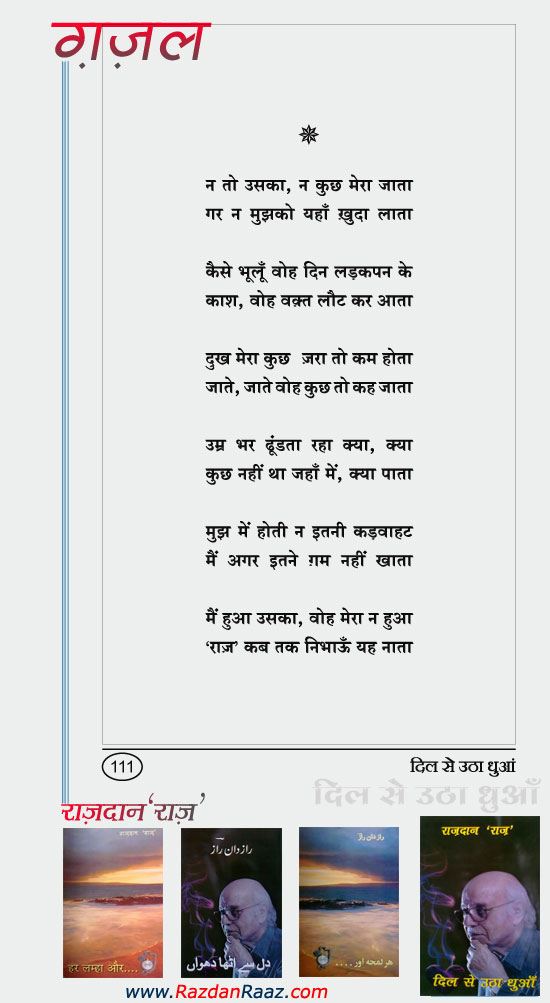 ग़ज़ल
न तो उसका, न कुछ मेरा जाता
गर न मुझको यहाँ ख़ुदा लाता
कैसे भूलूँ वोह दिन लड़कपन के
काश, वोह वक़्त लौट कर आता
दुख मेरा कुछ ज़रा तो कम होता
जाते, जाते वोह कुछ तो कह जाता
उम्र भर ढूंडता रहा क्या, क्या
कुछ नहीं था जहाँ में, क्या पाता
मुझ में होती न इतनी कड़वाहट
मैं अगर इतने ग़म नहीं खाता
मैं हुआ उसका, वोह मेरा न हुआ
‘राज़’ कब तक निभाऊँ यह नाता
111
दिल से उठा धुआं
दिल से उठा धुआँ
राज़दान ‘राज़’
राज़दान ‘राज़’
हर लम्हा और....
رازدان رازؔ
دل سے اٹھا دھواں
رازدان راز
ہر لمحہ اور ....
राज़दान ‘राज़’
दिल से उठा धुआँ
www.RazdanRaaz.com